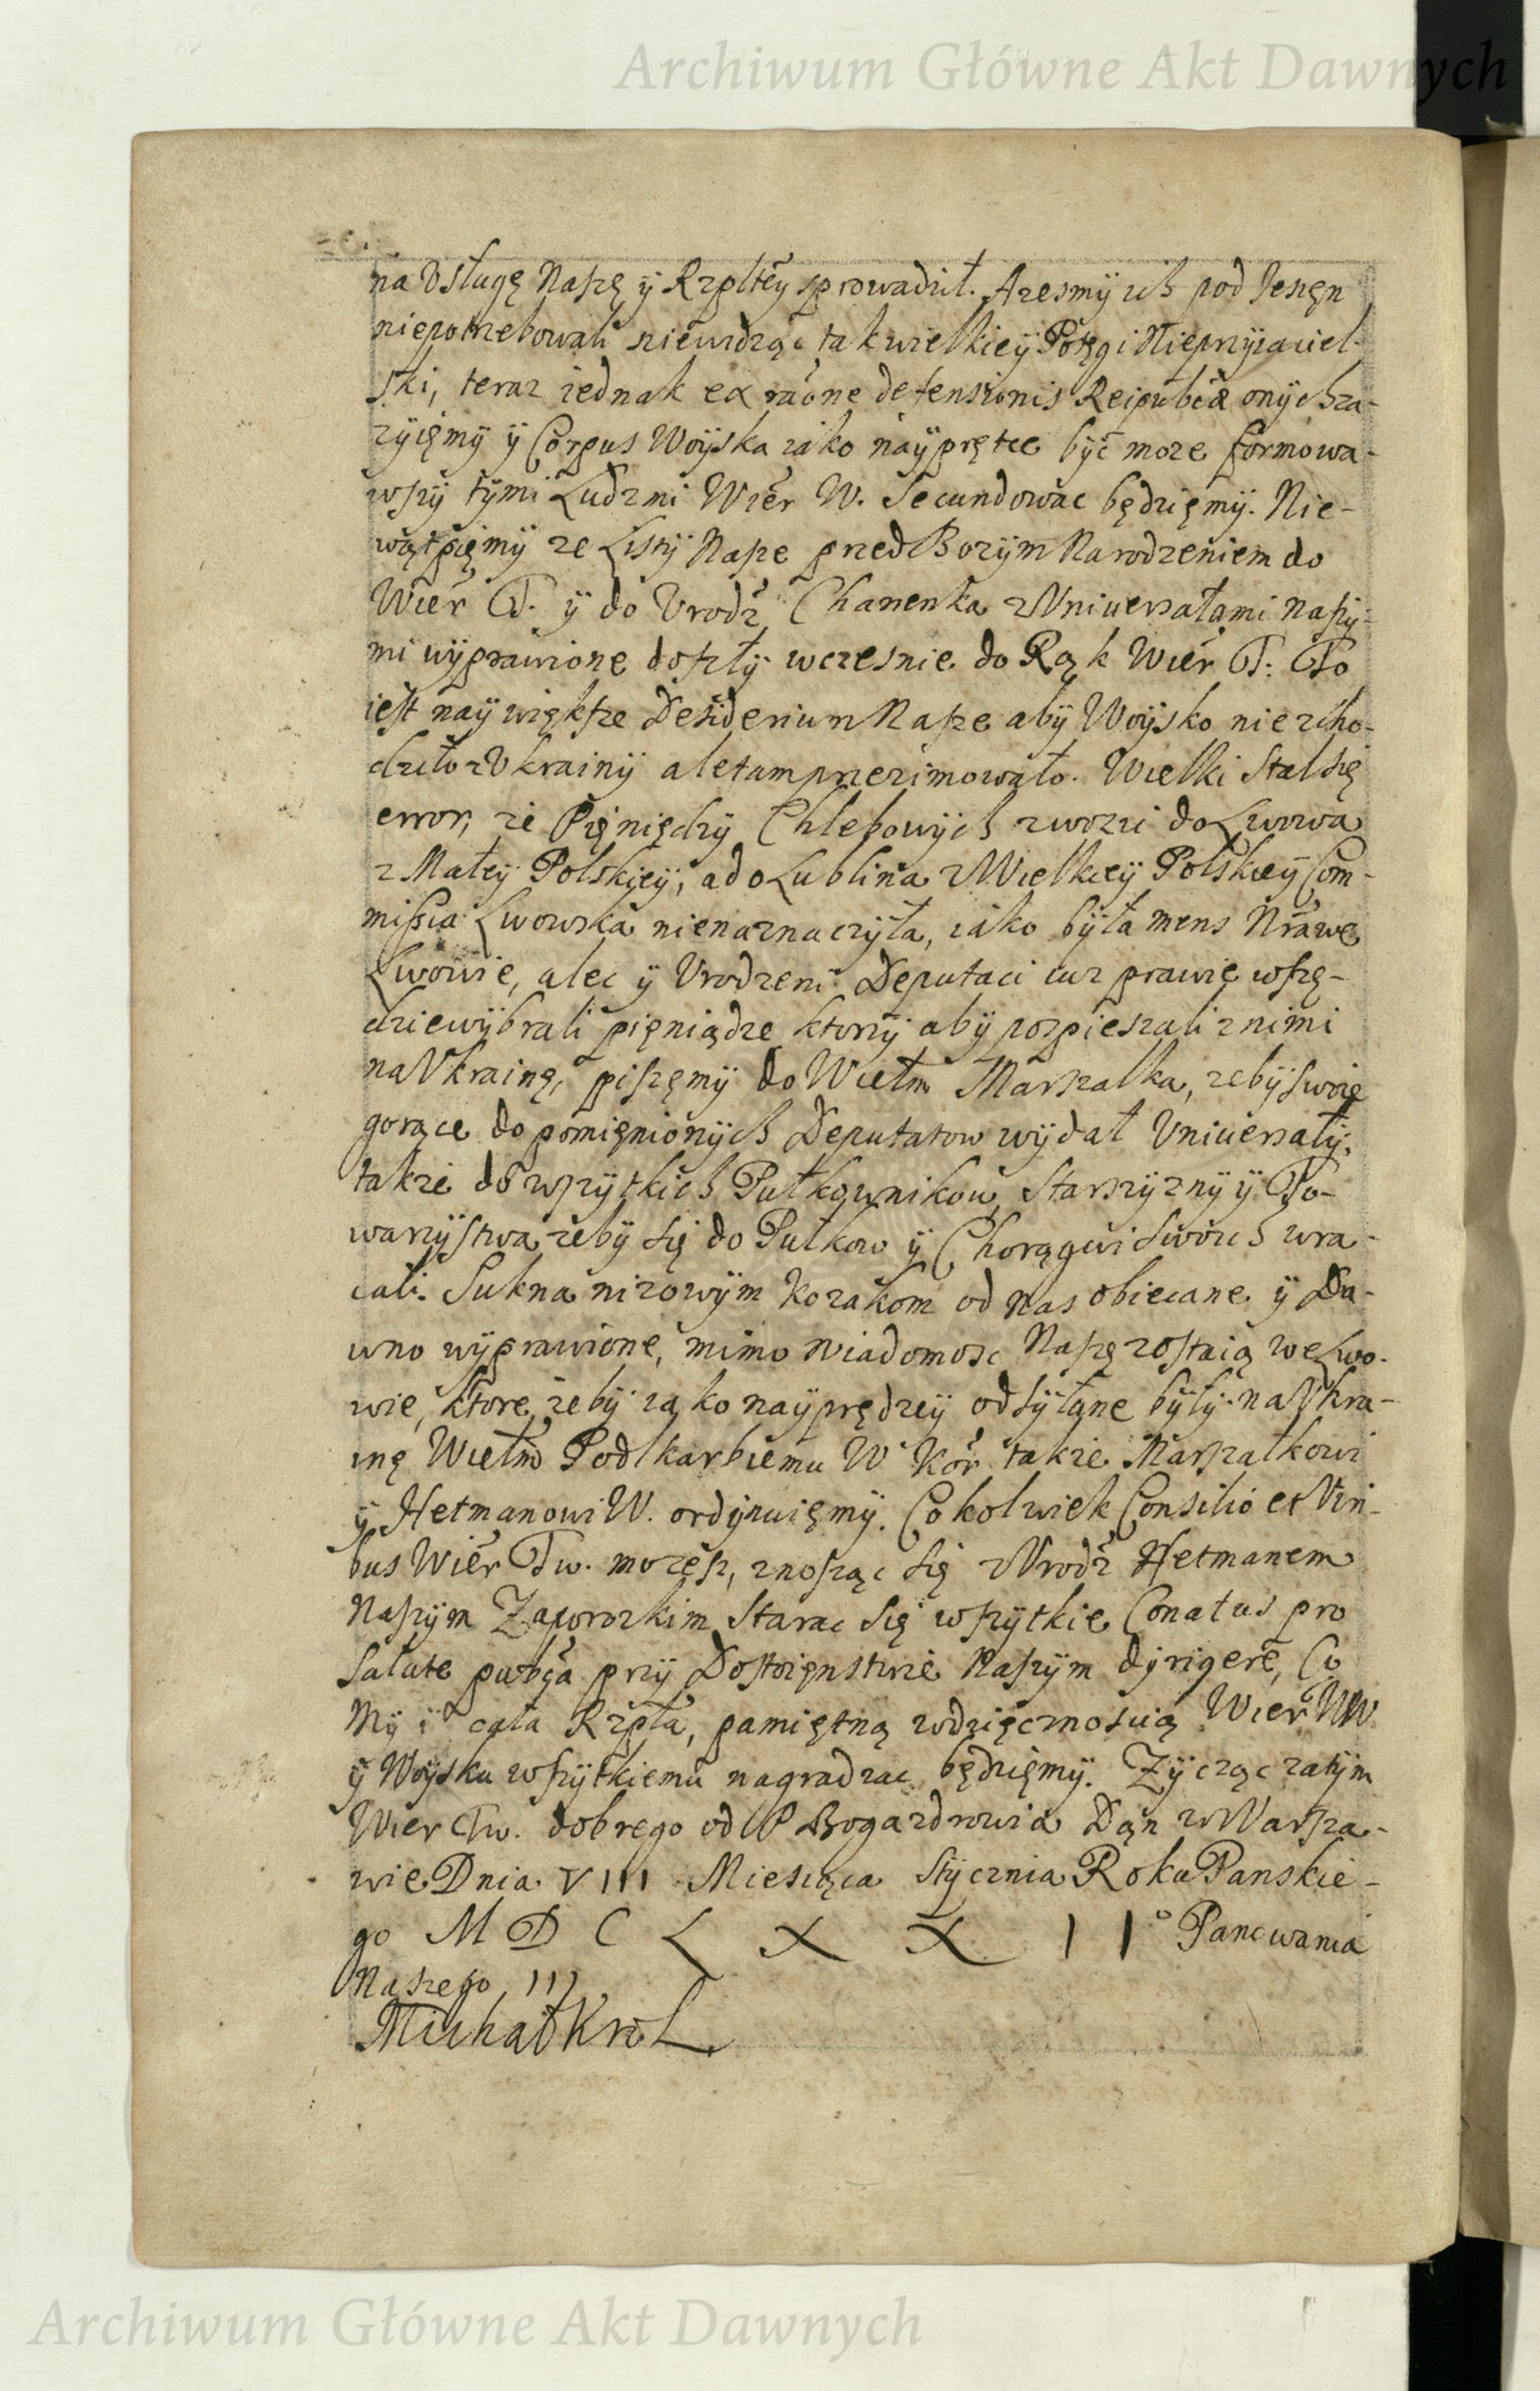 Archiwum Główne Akt Dawnych
na Usługę Naszę ÿ Rzpltey sprowadził. Azesmÿ ich pod Jesięn
niepotrzebowali niewidząc tak wielkieÿ Potęgi Nieprzÿiaciel-
ski, teraz iednak ex raône defensionis Reipubcæ onÿch za-
zÿięmÿ ÿ Corpus Woÿska iako naÿpręтce bÿć moze formowa-
wszÿ tÿmi Ludzmi Wier W. Secundowac będzięmÿ. Nie-
wątpięmÿ ze Listÿ Nasze przed Bozÿm Narodzeniem do
Wier T. ÿ do Urodz Chanenka z Uniuersałami naszÿ-
mi wÿprawione doszłÿ wczesnie do Rąk Wier T. To
iest naÿwiększe Desiderium Nasze abÿ Woÿsko nie zcho-
dziło z Ukrainÿ ale tam przezimowało. Wielki Stał się
error, ze Pięniędzÿ Chlebowÿch zwozić do Lwowa
z Małeÿ Polskieÿ, a do Lublina z Wielkieÿ Polskieÿ Com-
missia Lwowska nienaznaczÿła, iako bÿła mens Nra we
Lwowie, alec ÿ Urodzeni Deputaci iuz prawie wszę-
dzie wÿbrali pięniądze ktorzÿ abÿ pospieszali z nimi
na Ukrainę, piszęmÿ do Wielm Marszałka, zebÿ swoie
gorące do pomięnionÿch Deputatow wÿdał Uniuersałÿ,
takze do wszÿtkich Pułkownikow, Starszÿznÿ ÿ To-
warzÿstwa zebÿ się do Pułkow ÿ Chorągwi swoich wra-
cali. Sukna nizowÿm Kozakom od Nas obiecane ÿ Da-
wno wÿprawione, mimo wiadomosc Naszę zostaią we Lwo-
wie, ktore zebÿ iako naÿprędzeÿ odsÿłane bÿłÿ na Ukra-
inę Wielm Podskarbiemu W Kor. takze Marszałkowi
ÿ Hetmanowi W. ordÿnuięmÿ. Cokolwiek Consilio et Viri-
bus Wier Tw. mozesz, znosząc się z Urodz Hetmanem
Naszÿm Zaporozkim Starac się wszÿtkie Conatus pro
Salute pubca przÿ Dostoięnstwie Naszÿm dÿrigere, Co
Mÿ ÿ cała Rzpła, pamiętną wdzięcznoscią Wier W
ÿ Woÿsku wszÿtkiemu nagradzac będzięmÿ. Zÿcząc zatÿm
Wier Tw. dobrego od P Boga zdrowia Dan w Warsza-
wie Dnia VIII Miesiąca Stÿcznia Roku Panskie-
go M D C L X X I I° Panowania
Naszego III
Michał Krol
Archiwum Główne Akt Dawnych